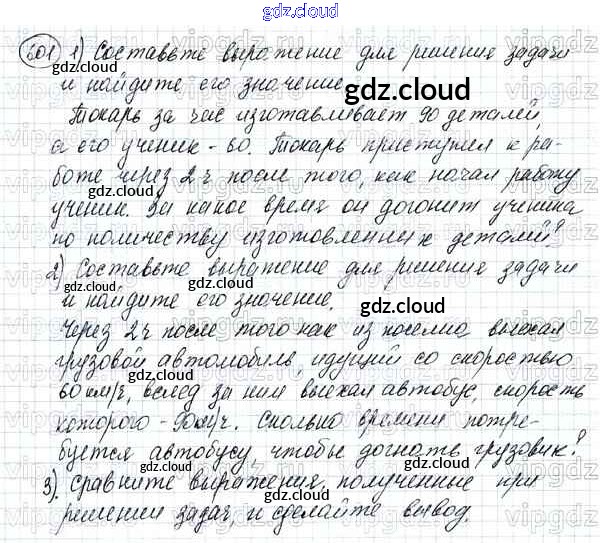 gdz.cloud
601 1) Составьте выражение для решения задачи
и найдите его значение.
Токарь за час изготавливает 90 деталей,
а его ученик - 60. Токарь приступил к ра-
боте через 2 ч после того, как начал работу
ученик. За какое время он догонит ученика
по количеству изготовленных деталей?
2) Составьте выражение для решения задачи
и найдите его значение.
Через 2 ч после того как из поселка выехал
грузовой автомобиль, идущий со скоростью
60 км/ч, вслед за ним выехал автобус, скорость
которого - 90 км/ч. Сколько времени потре-
буется автобусу, чтобы догнать грузовик?
3). Сравните выражения, полученные при
решении задач, и сделайте вывод.